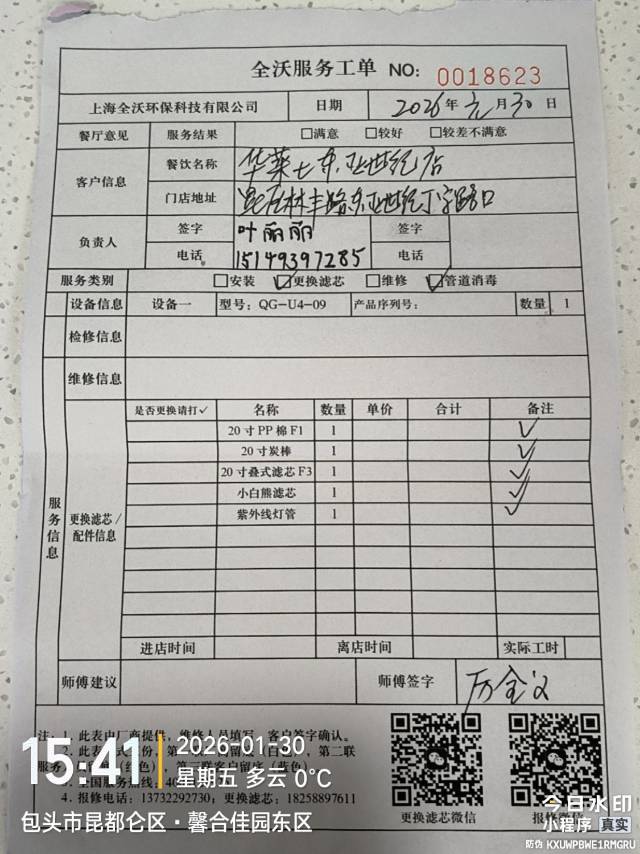 全沃服务工单 NO: 0018623
上海全沃环保科技有限公司 日期 2026年元月30日
餐厅意见 服务结果 □满意 □较好 □较差不满意
客户信息 餐饮名称 华莱士东亚世纪店
门店地址 昆区林丰路东亚世纪丁字路口
负责人 签字 叶丽丽 签字
电话 15149397285 电话
服务类别 □安装 ☑更换滤芯 □维修 ☑管道消毒
设备信息 设备一 型号: QG-U4-09 产品序列号: 数量 1
检修信息
维修信息
服务信息
更换滤芯/配件信息
是否更换请打✓ 名称 数量 单价 合计 备注
20寸PP棉F1 1 ✓
20寸炭棒 1 ✓
20寸叠式滤芯F3 1 ✓
小白熊滤芯 1 ✓
紫外线灯管 1 ✓
进店时间 离店时间 实际工时
师傅建议 师傅签字
注: 1. 此表由厂商提供, 维修人员填写, 客户签字确认。
4. 报修电话: 13732292730; 更换滤芯: 18258897611
更换滤芯微信 报修微信
15:41 2026-01-30
星期五 多云 0℃
包头市昆都仑区·馨合佳园东区
今日水印
小程序 真实
防伪 KXUWPBWE1RMGRU